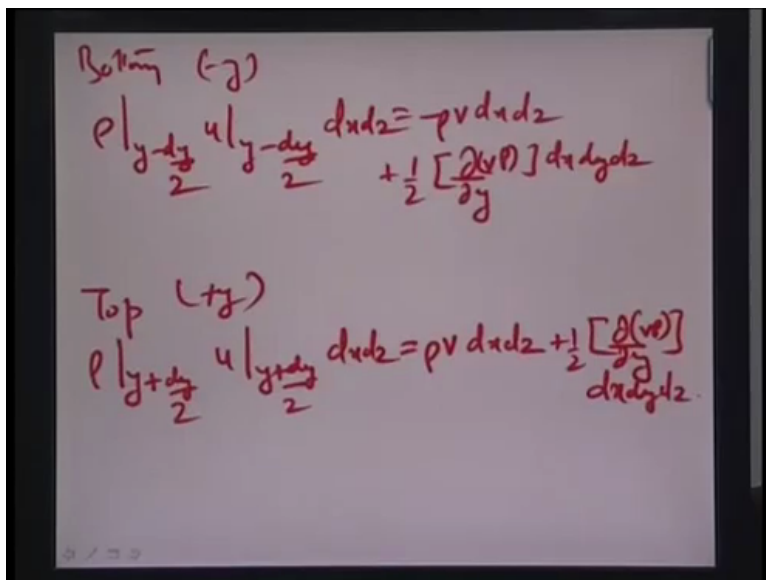 Bottom (-y)
ρ|y-dy/2 u|y-dy/2 dxdz = -ρv dxdz
+ 1/2 [∂(vρ)/∂y] dxdydz
Top (+y)
ρ|y+dy/2 u|y+dy/2 dxdz = ρv dxdz + 1/2 [∂(vρ)/∂y]
dxdydz.